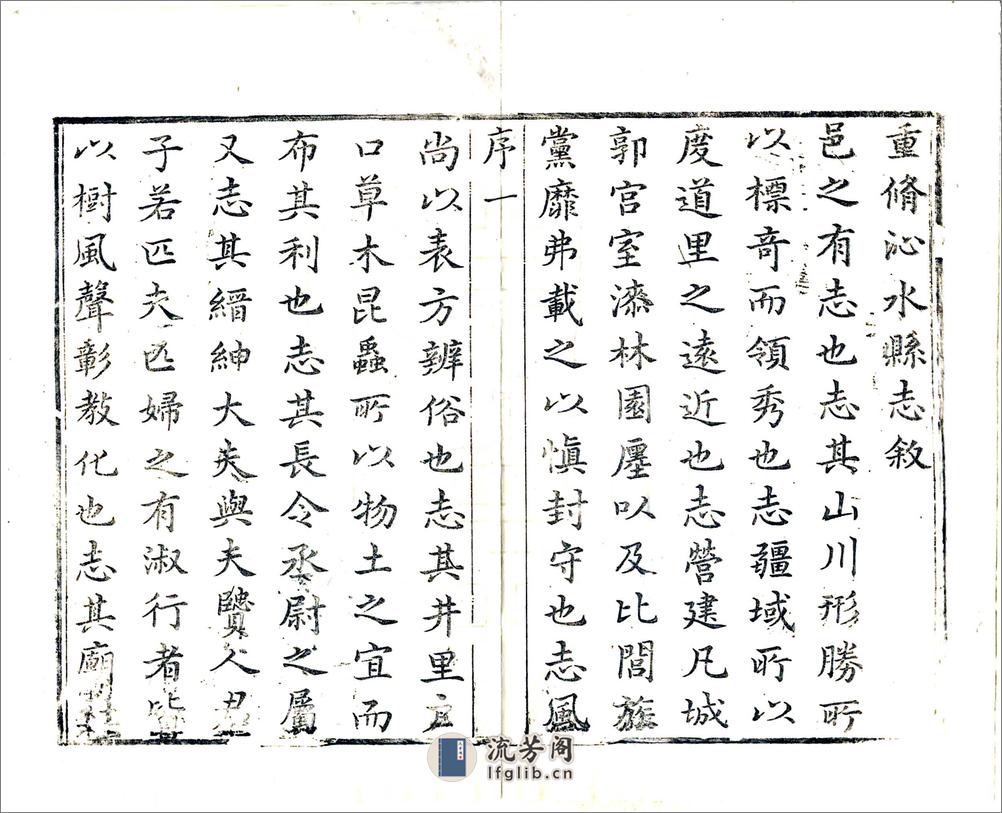 重脩沁水縣志敘
邑之有志也志其山川形勝所
以標竒而領秀也志疆域所以
度道里之遠近也志營建凡城
郭宫室漆林園廛以及比閭族
黨靡弗載之以慎封守也志風
序一
尚以表方辨俗也志其井里戶
口草木昆蟲所以物土之宜而
布其利也志其長令丞尉之屬
又志其縉紳大夫與夫賢人君
子若匹夫匹婦之有淑行者皆
以樹風聲彰教化也志其廟
流芳阁
lfglib.cn